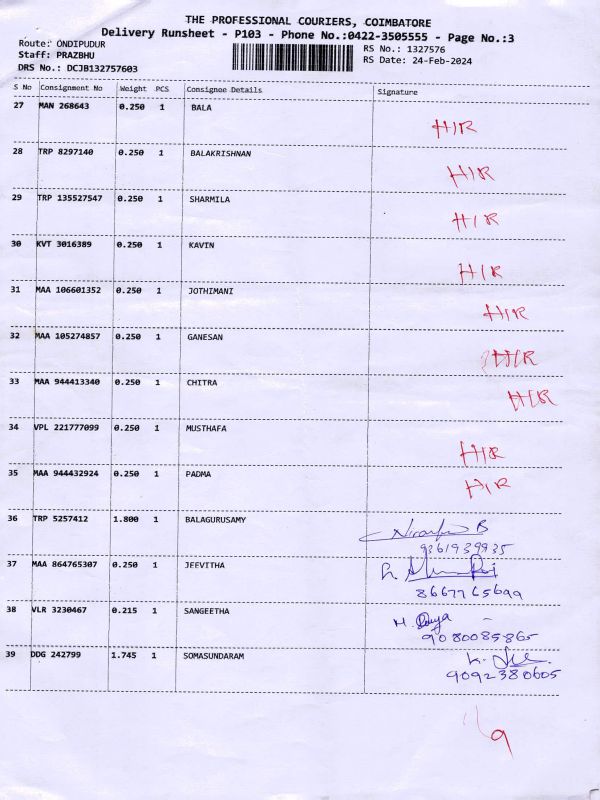 THE PROFESSIONAL COURIERS, COIMBATORE
Delivery Runsheet - P103 - Phone No.:0422-3505555 - Page No.:3
Route: ONDIPUDUR RS No.: 1327576
Staff: PRAZBHU RS Date: 24-Feb-2024
DRS No.: DCJB132757603
S No Consignment No Weight PCS Consignee Details Signature
27 MAN 268643 0.250 1 BALA
HIR
28 TRP 8297140 0.250 1 BALAKRISHNAN
HIR
29 TRP 135527547 0.250 1 SHARMILA
HIR
30 KVT 3016389 0.250 1 KAVIN
HIR
31 MAA 106601352 0.250 1 JOTHIMANI
HIR
32 MAA 105274857 0.250 1 GANESAN
HIR
33 MAA 944413340 0.250 1 CHITRA
HIR
34 VPL 221777099 0.250 1 MUSTHAFA
HIR
35 MAA 944432924 0.250 1 PADMA
HIR
36 TRP 5257412 1.800 1 BALAGURUSAMY
B
9361939935
37 MAA 864765307 0.250 1 JEEVITHA
8667765699
38 VLR 3230467 0.215 1 SANGEETHA
9080085865
39 DDG 242799 1.745 1 SOMASUNDARAM
9092380605
9